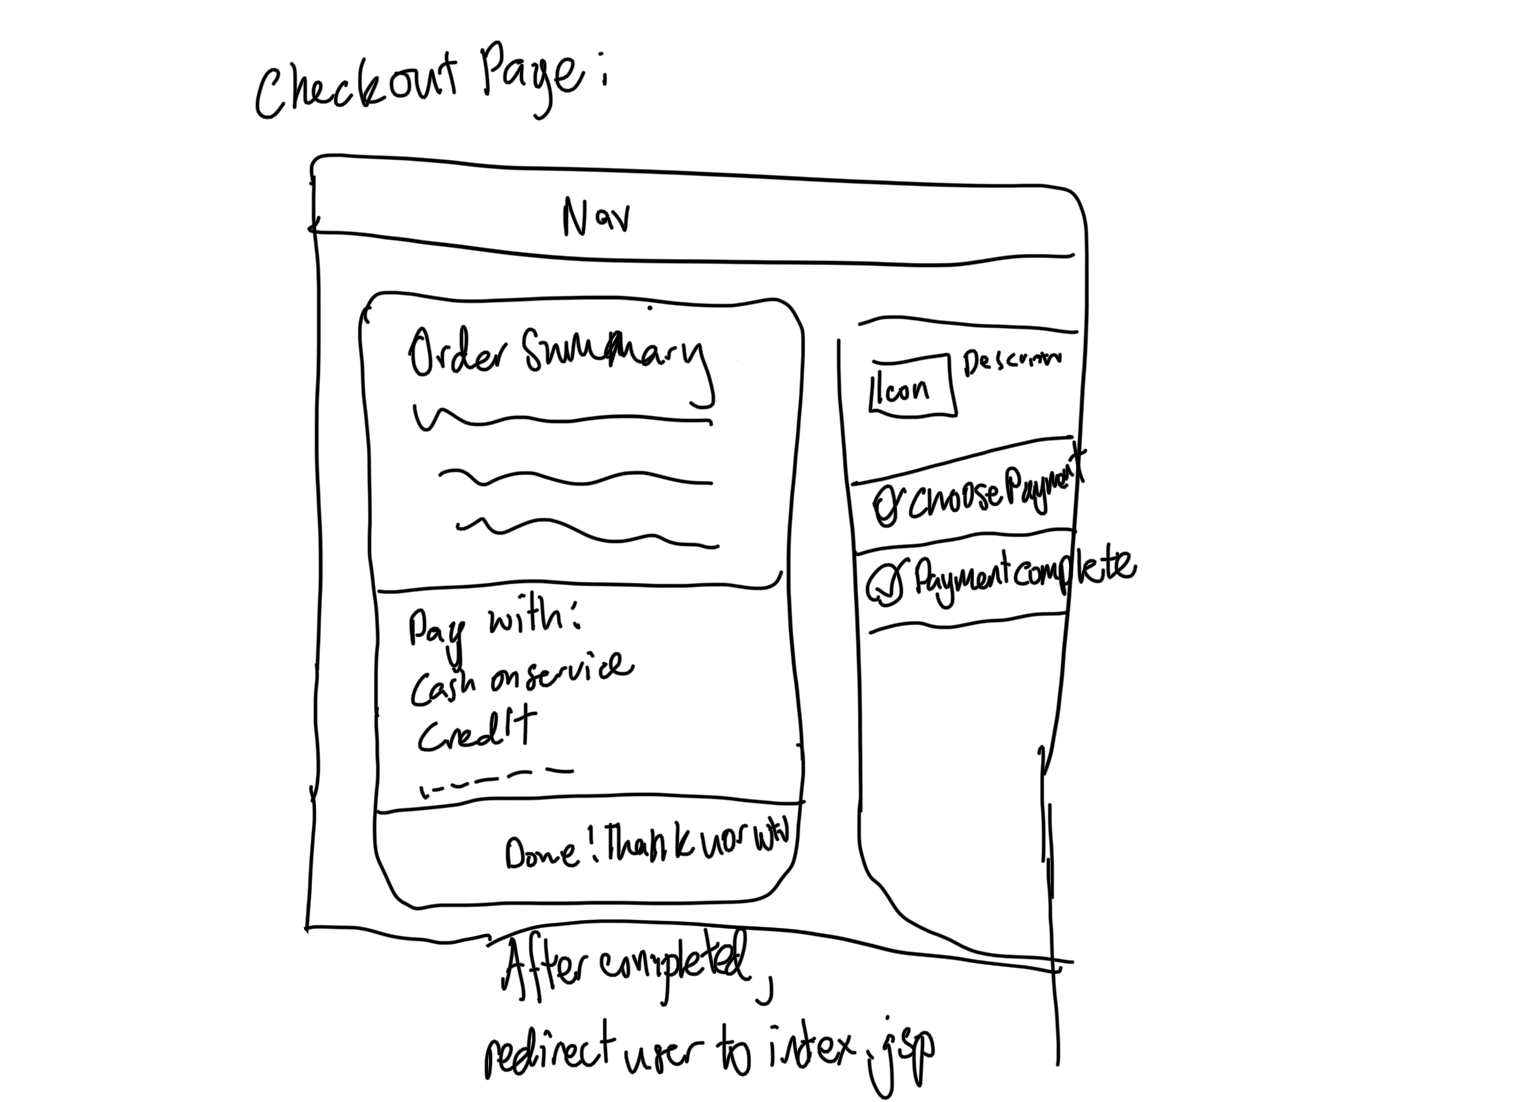 Checkout Page:
Nav
Order Summary
Pay with:
Cash on service
Credit
Done! Thank
Icon
Choose Payment
Payment complete
After completed,
redirect user to index.jsp